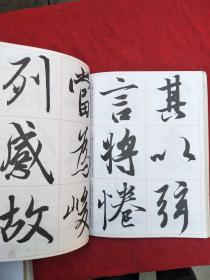 其以
言將惓
當為峻
列感故